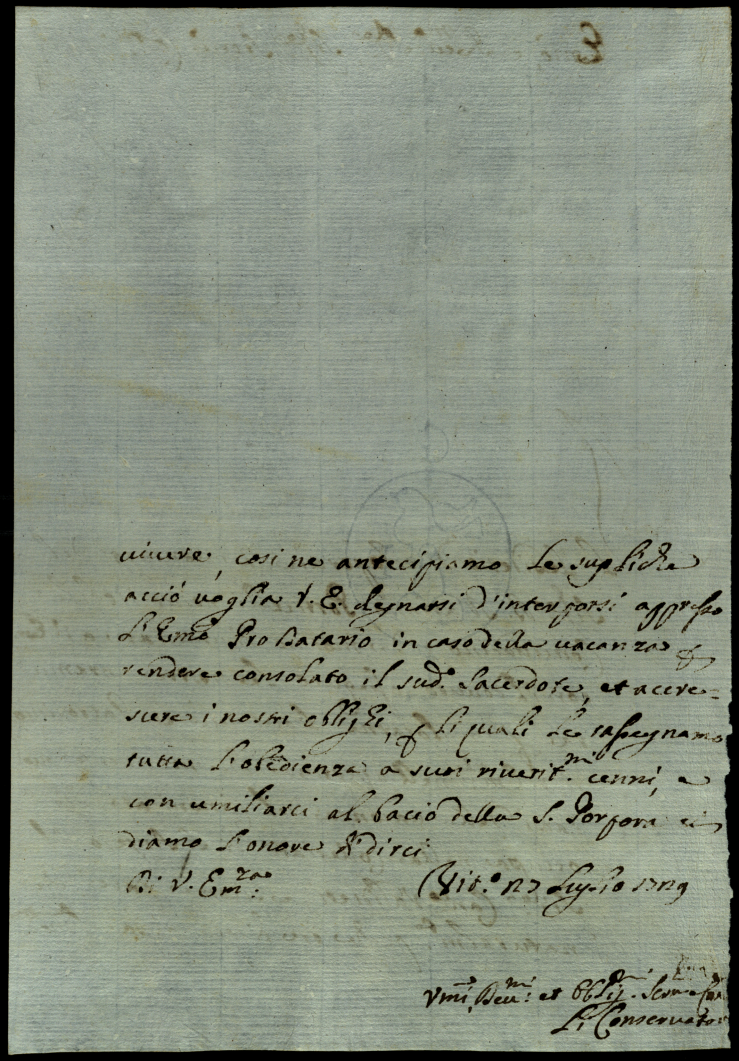 vivere, cosi ne antecipiamo le supliche
acciò voglia V. E. degnarsi d'interporsi appresso
l'Emo Pro Datario in caso della vacanza p
rendere consolato il sud.º Sacerdote, et accre=
scere i nostri oblighi, p li quali le rassegnamo
tutta l'obedienza a suoi riverit.mi cenni, e
con umiliarci al bacio della S. Porpora ci
diamo l'onore di dirci
Di V. Em.za Vit.º 27 Luglio 1729
Vmi, Deu.mi et Oblig.mi Seru.
Li Conservatori